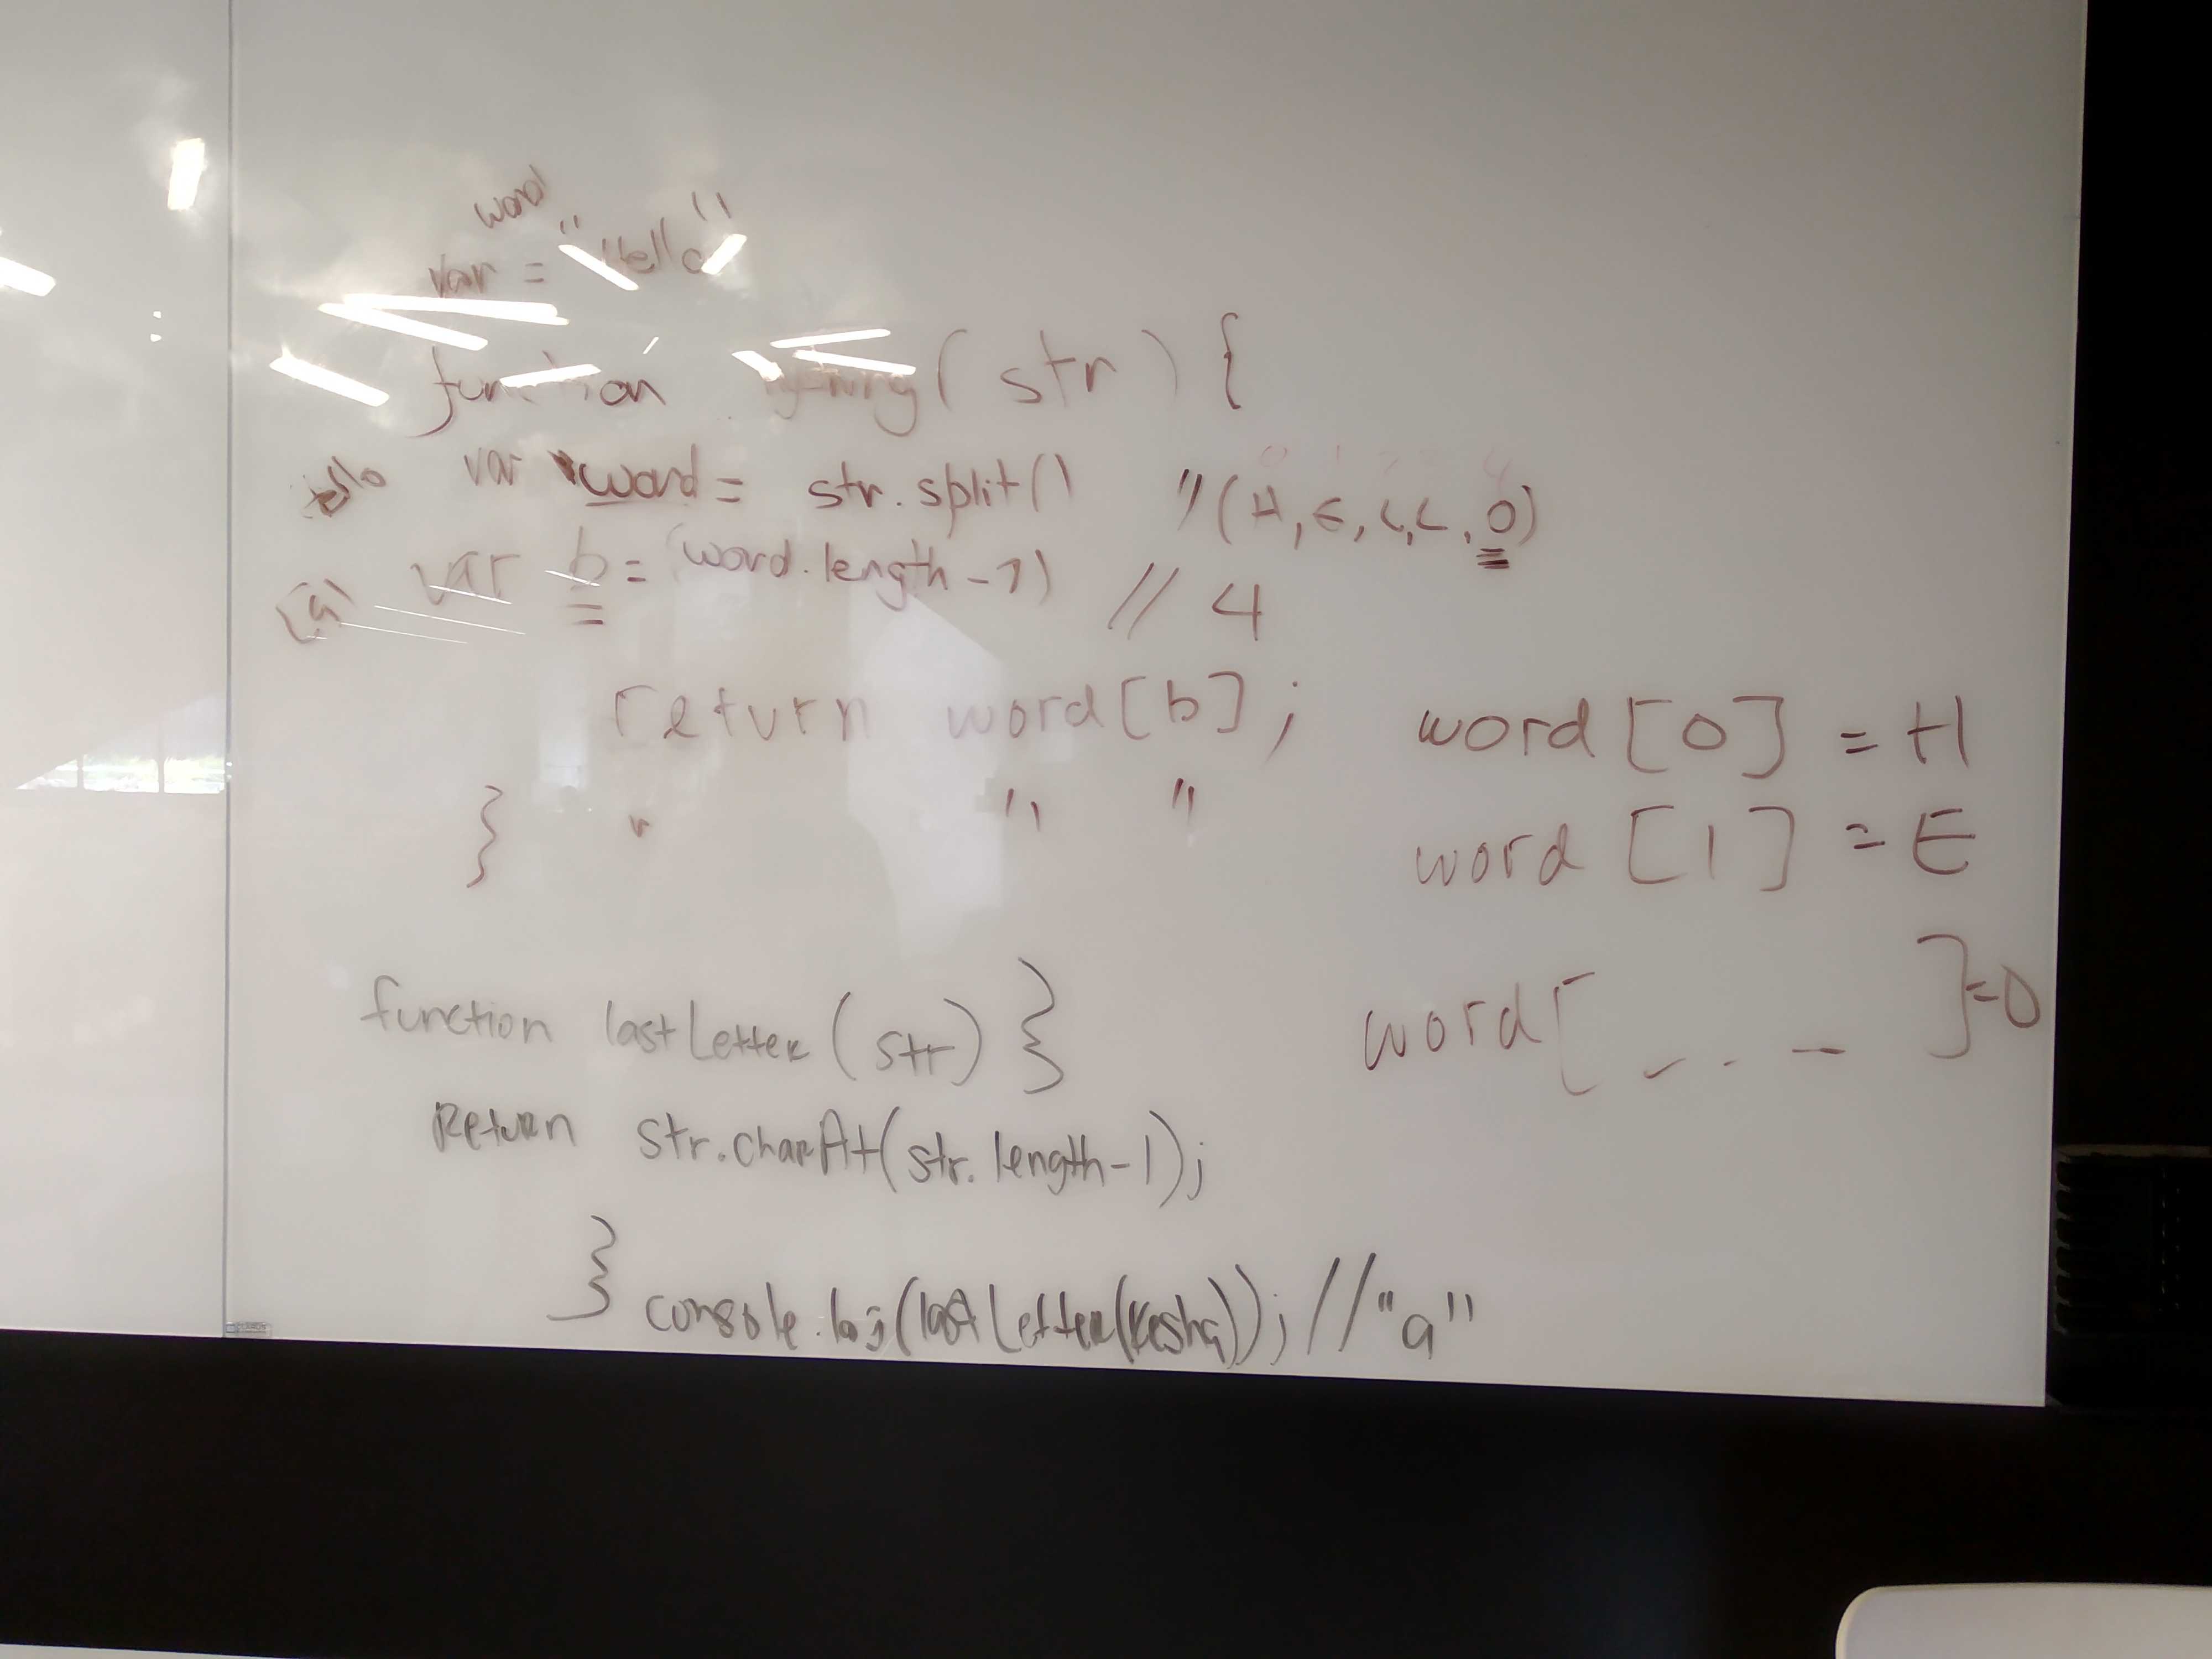 word
var = "Hello"
function (str) {
Hello var word = str.split() //(H, E, L, L, O)
var b = (word.length-1) // 4
return word[b];
} " " "
word[0] = H
word[1] = E
word[ _ . . _ ]=O
function lastLetter(str) }
Return str.charAt(str.length-1);
} console.log(lastLetter(Kesha)); //"a"